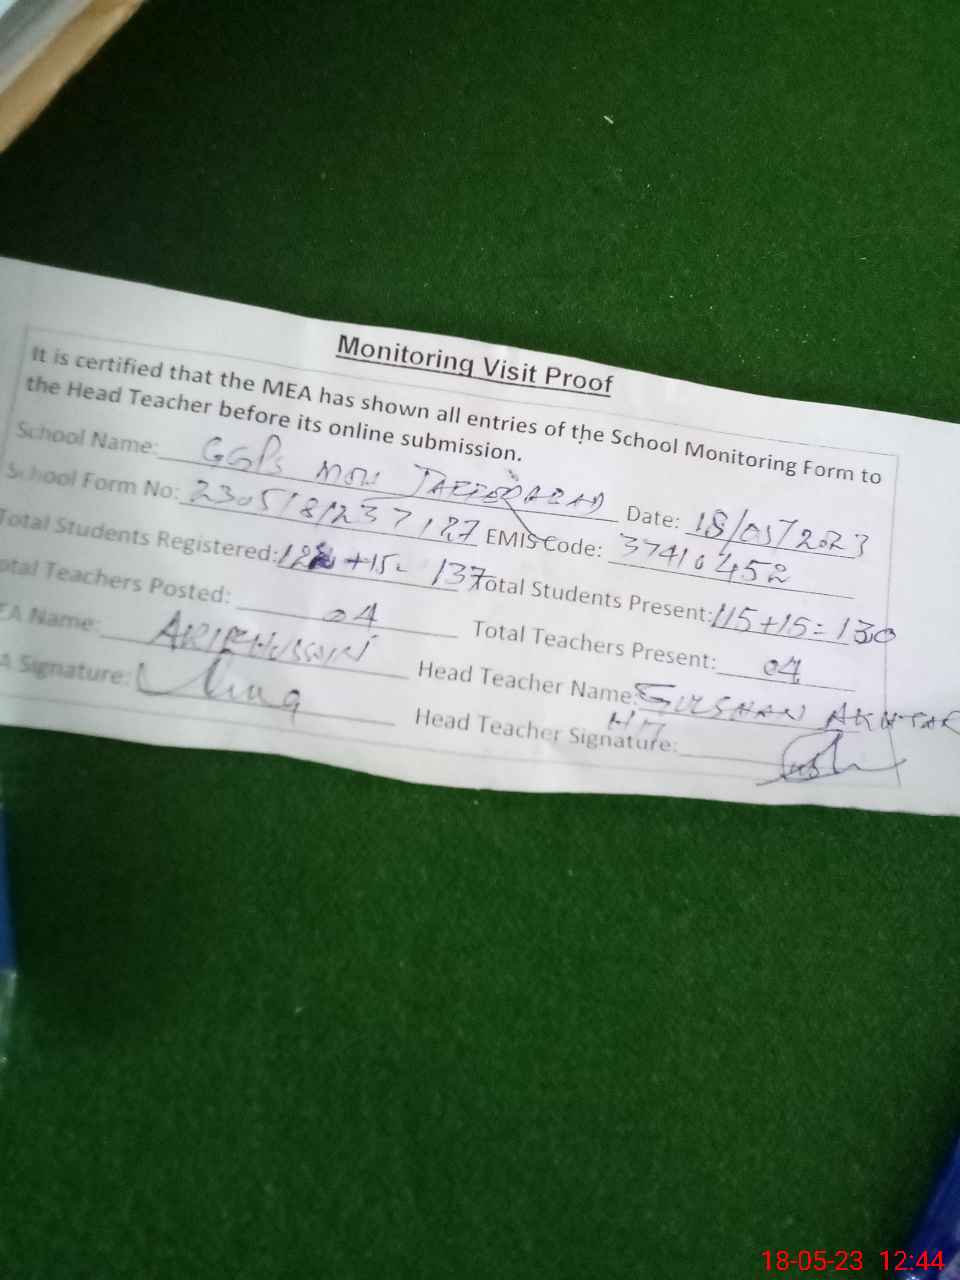 Monitoring Visit Proof
It is certified that the MEA has shown all entries of the School Monitoring Form to
the Head Teacher before its online submission.
School Name: GGPS Date: 18/05/2023
School Form No: EMIS Code: 37410452
Total Students Registered: +15= 137 Total Students Present: 115+15=130
Total Teachers Posted: 04 Total Teachers Present: 04
EA Name: ARIF HUSSAIN Head Teacher Name: GULSHAN AKHTAR
A Signature: Head Teacher Signature:
HM
18-05-23 12:44